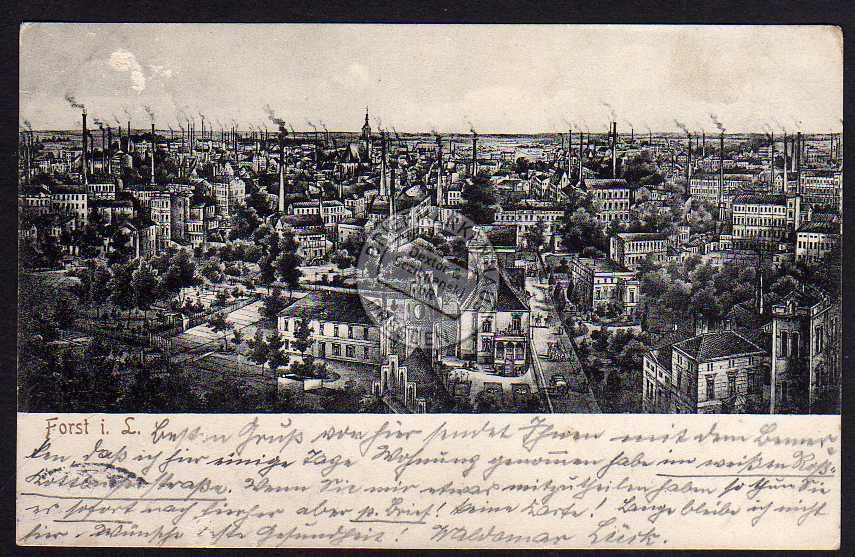 Forst i. L. Besten Gruß von hier sendet Ihnen mit dem Bemer-
ken, daß ich hier einige Tage Wohnung genommen habe im weißen Roß.
straße. Wenn Sie mir etwas mitzutheilen haben so thun Sie
es sofort nach hierher aber p. Brief! keine Karte! Lange bleibe ich nicht
hier. Wünsche Gesundheit! Waldemar Lück.